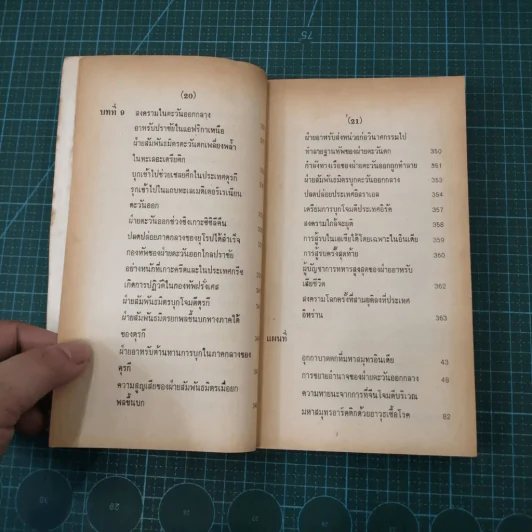 (20)
บทที่ 9 สงครามในตะวันออกกลาง
อาหรับปราชัยในแอฟริกาเหนือ
ฝ่ายสัมพันธมิตรตะวันตกเพลี่ยงพล้ำ
ในทะเลอะเดรียติค
บุกเข้าไปช่วยเชลยศึกในประเทศตุรกี
รุกเข้าไปในแถบทะเลเมดิเตอร์เรเนียน
ตะวันออก
ฝ่ายตะวันออกช่วงชิงเกาะซิซิลีคืน
ปลดปล่อยภาคกลางของยุโรปได้สำเร็จ
กองทัพของฝ่ายตะวันออกใกล้ปราชัย
อย่างหนักที่เกาะครีตและในประเทศกรีซ
เกิดการปฏิวัติในกองทัพฝรั่งเศส
ฝ่ายสัมพันธมิตรบุกโจมตีตุรกี
ฝ่ายสัมพันธมิตรยกพลขึ้นบกทางภาคใต้
ของตุรกี
ฝ่ายอาหรับต้านทานการบุกในภาคกลางของ
ตุรกี
ความสูญเสียของฝ่ายสัมพันธมิตรเมื่อยก
พลขึ้นบก
(21)
ฝ่ายอาหรับส่งหน่วยก่อวินาศกรรมไป
ทำลายฐานทัพของฝ่ายตะวันตก 350
กำลังทางเรือของฝ่ายตะวันออกถูกทำลาย 351
ฝ่ายสัมพันธมิตรบุกตะวันออกกลาง 353
ปลดปล่อยประเทศอิสราเอล 354
เตรียมการบุกโจมตีประเทศอิรัค 357
สงครามใกล้จะยุติ 358
การสู้รบในเอเซียใต้โดยเฉพาะในอินเดีย 359
การสู้รบครั้งสุดท้าย 360
ผู้บัญชาการทหารสูงสุดของฝ่ายอาหรับ
เสียชีวิต 362
สงครามโลกครั้งที่สามสุดลงที่ประเทศ
อิหร่าน 363
แผนที่
อุกกาบาตตกที่มหาสมุทรอินเดีย 43
การขยายอำนาจของฝ่ายตะวันออกกลาง 49
ความหายนะจากการที่จีนโจมตีบริเวณ
มหาสมุทรอาร์คติกด้วยอาวุธเชื้อโรค 82